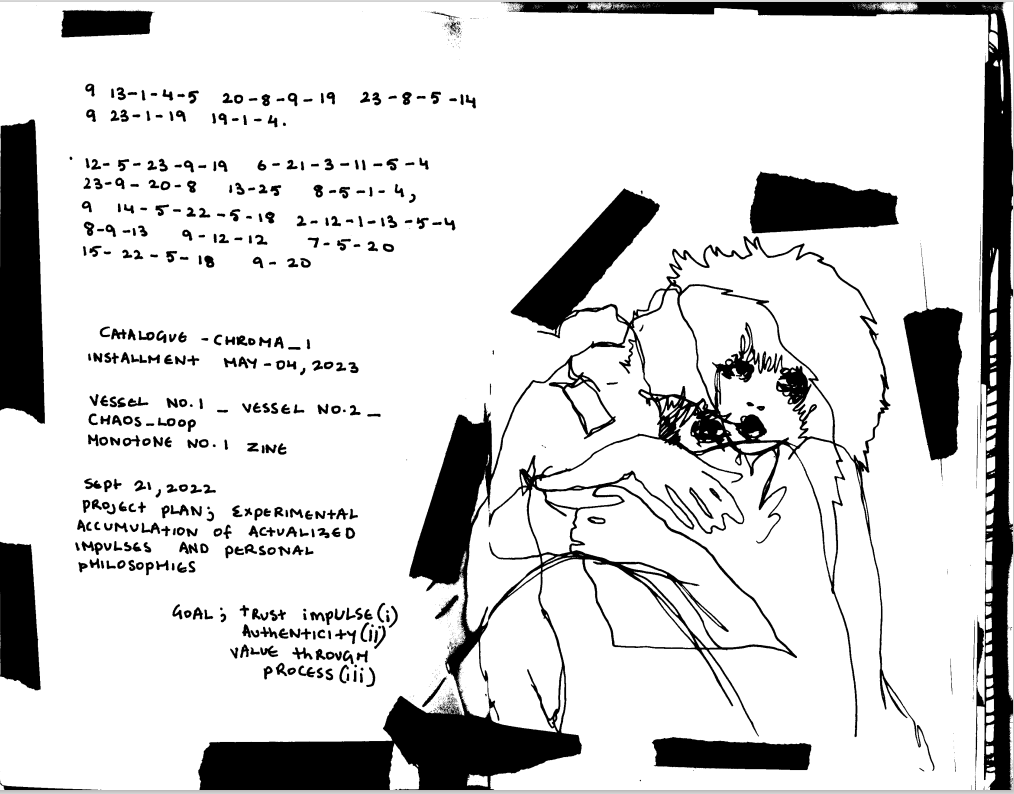 9 13-1-4-5 20-8-9-19 23-8-5-14
9 23-1-19 19-1-4.
12-5-23-9-19 6-21-3-11-5-4
23-9-20-8 13-25 8-5-1-4,
9 14-5-22-5-18 2-12-1-13-5-4
8-9-13 9-12-12 7-5-20
15-22-5-18 9-20
CATALOGUE - CHROMA_1
INSTALLMENT MAY-04, 2023
VESSEL NO.1 _ VESSEL NO.2 _
CHAOS_LOOP
MONOTONE NO.1 ZINE
SEPT 21, 2022
PROJECT PLAN; EXPERIMENTAL
ACCUMULATION OF ACTUALIZED
IMPULSES AND PERSONAL
PHILOSOPHIES
GOAL; TRUST IMPULSE (i)
AUTHENTICITY (ii)
VALUE THROUGH
PROCESS (iii)